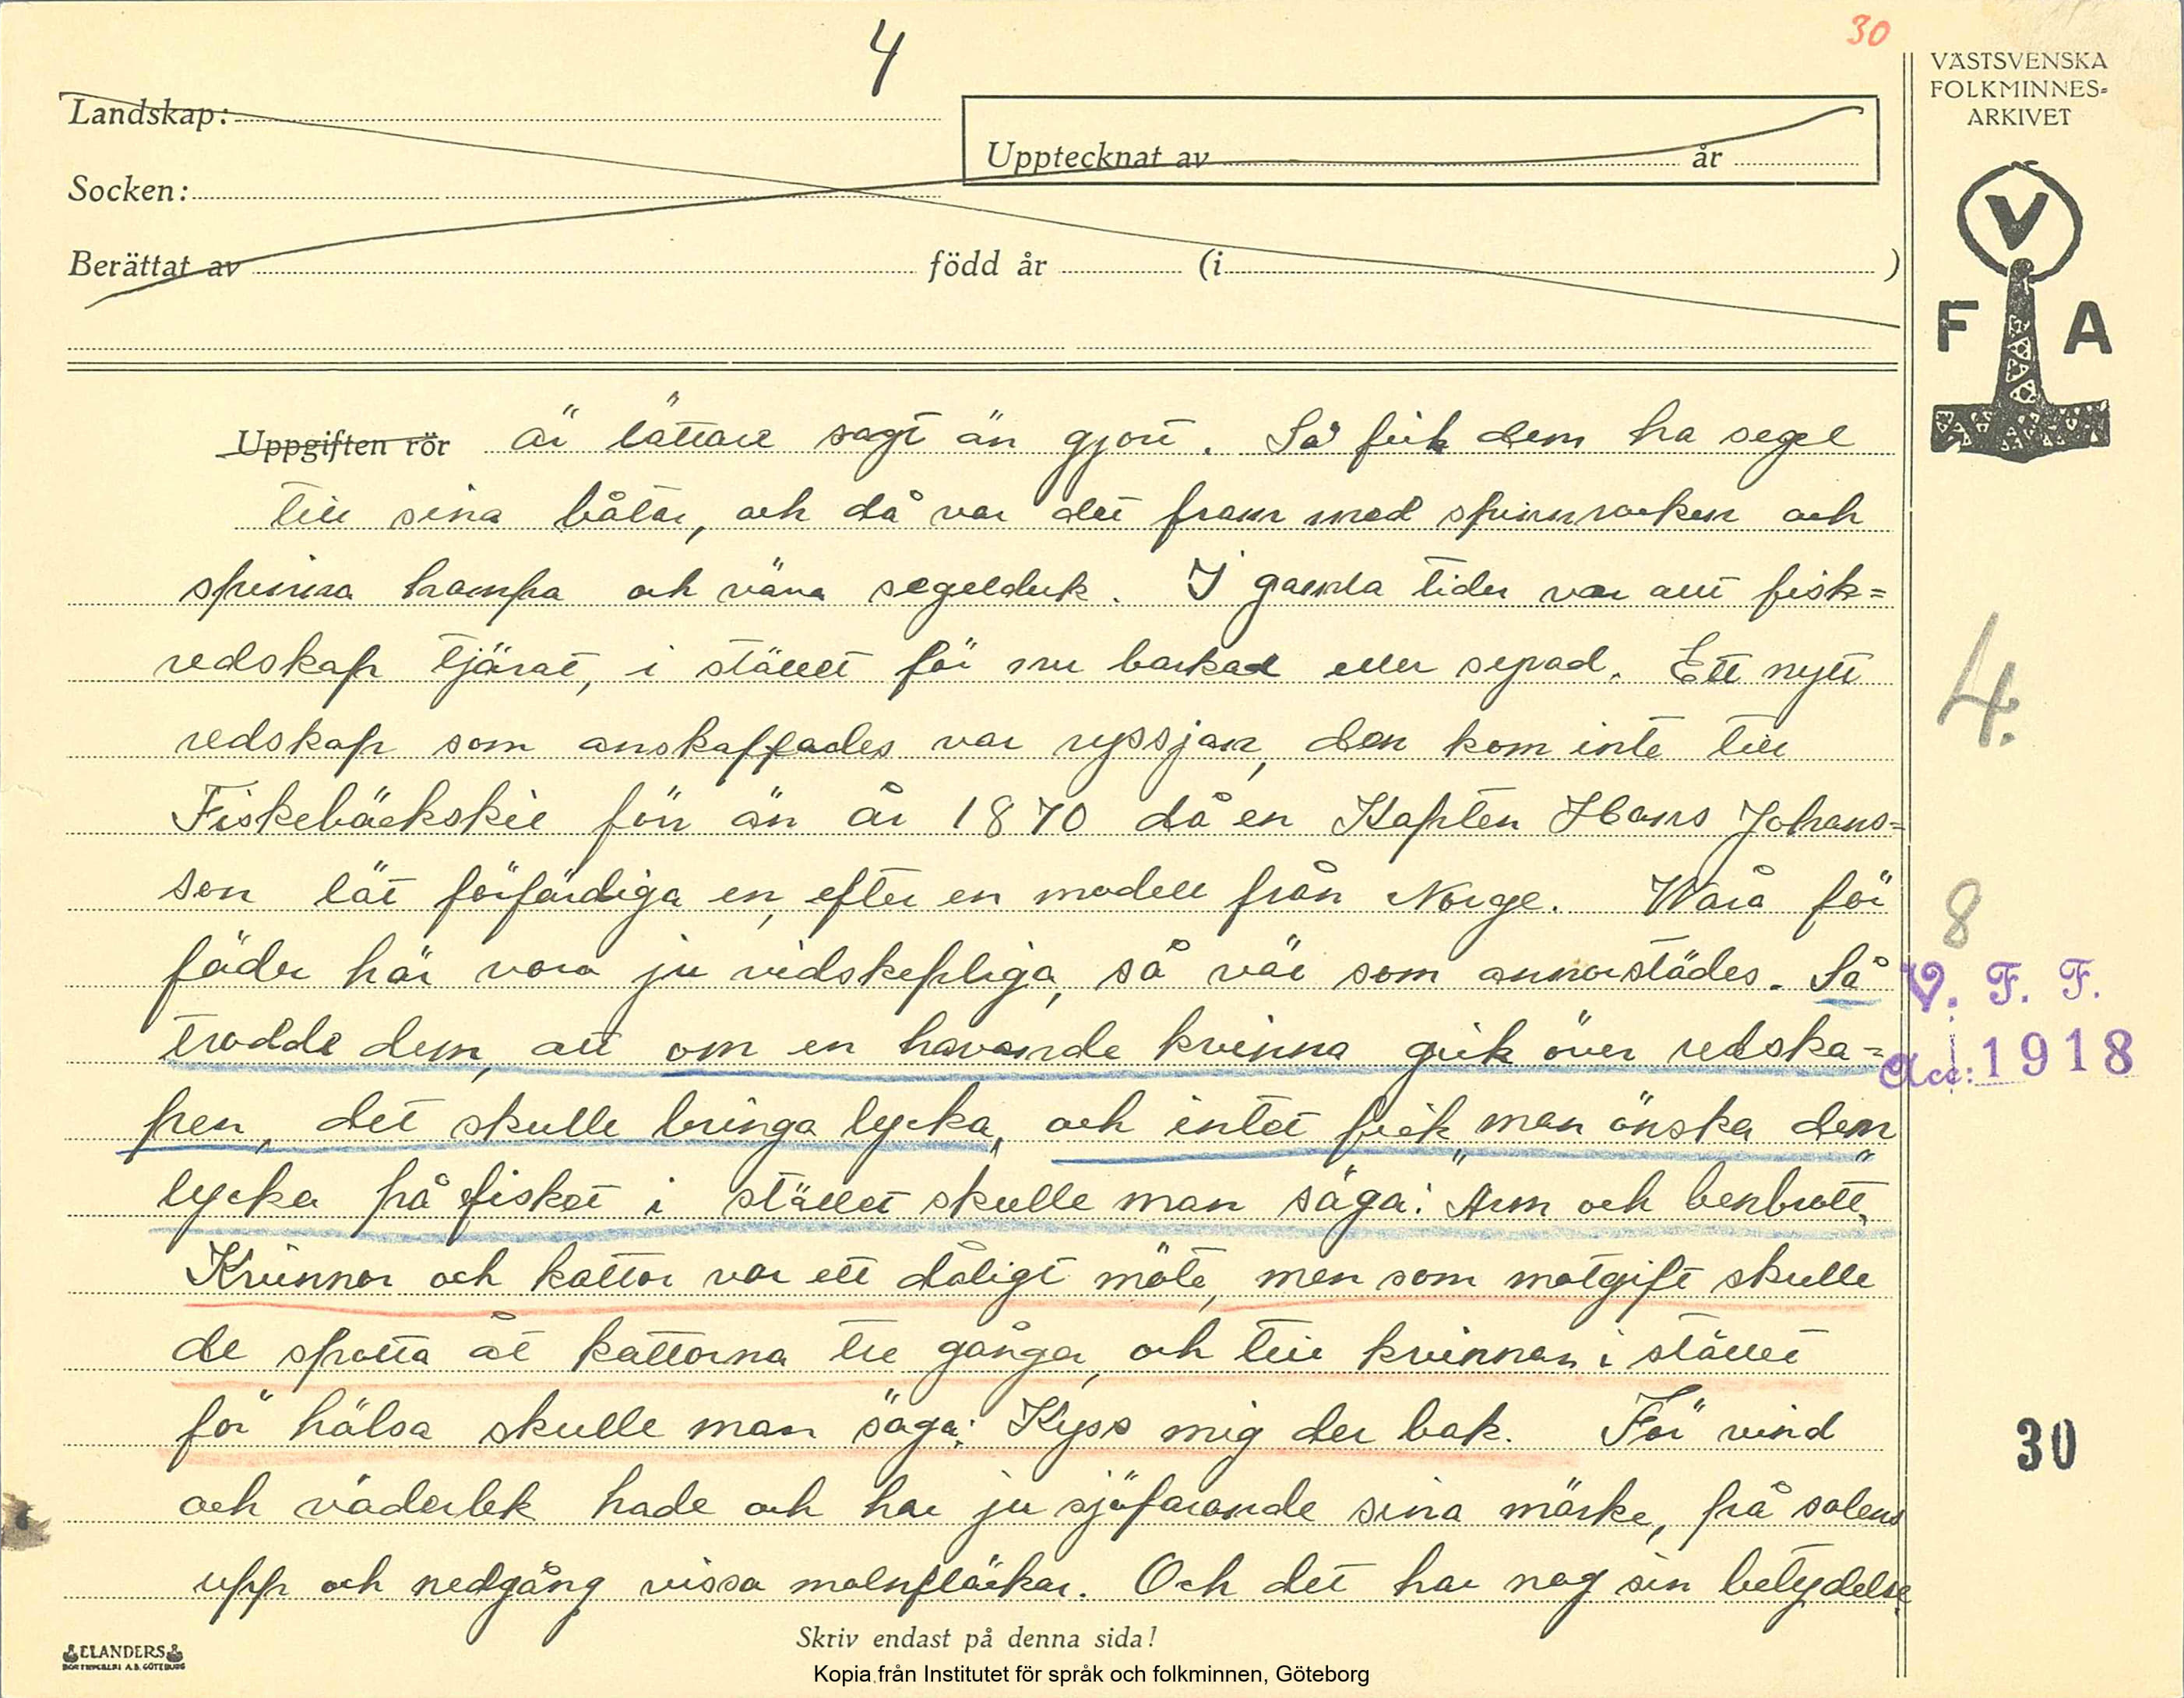 4
30
VÄSTSVENSKA
FOLKMINNES=
ARKIVET
Landskap:
Upptecknat av år
Socken:
Berättat av född år (i )
V
F A
Uppgiften rör är lättare sagt än gjort. Så fick dem ha segel
till sina båtar, och då var det fram med spinnrocken och
spinna hampa och väva segelduk. I gamla tider var allt fisk=
redskap tjärat, i stället för nu barkad eller syrad. Ett nytt
redskap som anskaffades var ryssjan, den kom inte till
Fiskebäckskil förr än år 1870 då en Kapten Hans Johans=
son lät förfärdiga en, efter en modell från Norge. Wåra för
fäder här voro ju vidskepliga, så väl som annorstädes. Så
trodde dem, att om en havande kvinna gick över redska=
pen, det skulle bringa lycka, och intet fick man önska dem
lycka på fisket i stället skulle man säga: "Arm och benbrott"
Kvinnor och kattor var ett dåligt möte, men som motgift skulle
de spotta åt kattorna tre gånger, och till kvinnan i stället
för hälsa skulle man säga: Kyss mig der bak. För vind
och väderlek hade och har ju sjöfarande sina märke, på solens
upp och nedgång vissa molnfläckar. Och det har nog sin betydelse
4.
8
V. F. F.
Acc: 1918
30
ELANDERS
BOKTRYCKERI A.B. GÖTEBORG
Skriv endast på denna sida!
Kopia från Institutet för språk och folkminnen, Göteborg